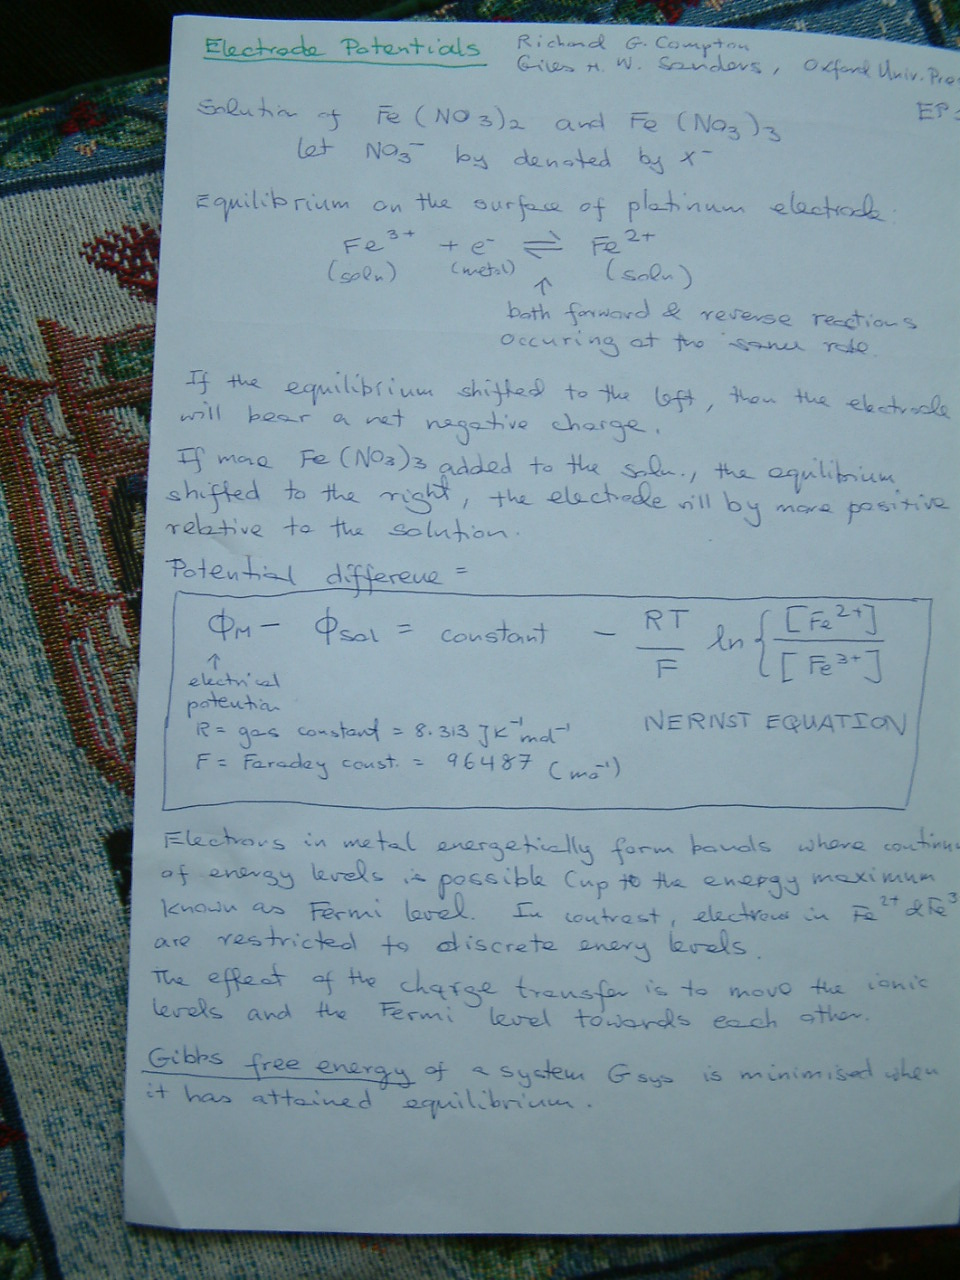 Electrode Potentials
Richard G. Compton
Giles H. W. Sanders, Oxford Univ. Pres
EP
Solution of Fe (NO3)2 and Fe (NO3)3
let NO3⁻ by denoted by x⁻
Equilibrium on the surface of platinum electrode:
Fe³⁺ + e⁻ ⇌ Fe²⁺
(soln) (metal) (soln)
↑
both forward & reverse reactions
occuring at the same rate.
If the equilibrium shifted to the left, then the electrode
will bear a net negative charge.
If more Fe (NO3)3 added to the soln., the equilibrium
shifted to the right, the electrode will by more positive
relative to the solution.
Potential difference =
ΦM – Φsol = constant – RT/F ln { [Fe²⁺] / [Fe³⁺]
↑
electrical
potention
R = gas constant = 8.313 JK⁻¹mol⁻¹
NERNST EQUATION
F = Faraday const. = 96487 (mol⁻¹)
Electrons in metal energetically form bonds where continu
of energy levels is possible (up to the energy maximum
known as Fermi level. In contrest, electrons in Fe²⁺ & Fe³
are restricted to discrete enery levels.
The effect of the charge transfer is to move the ionic
levels and the Fermi level towards each other.
Gibbs free energy of a system Gsys is minimised when
it has attained equilibrium.